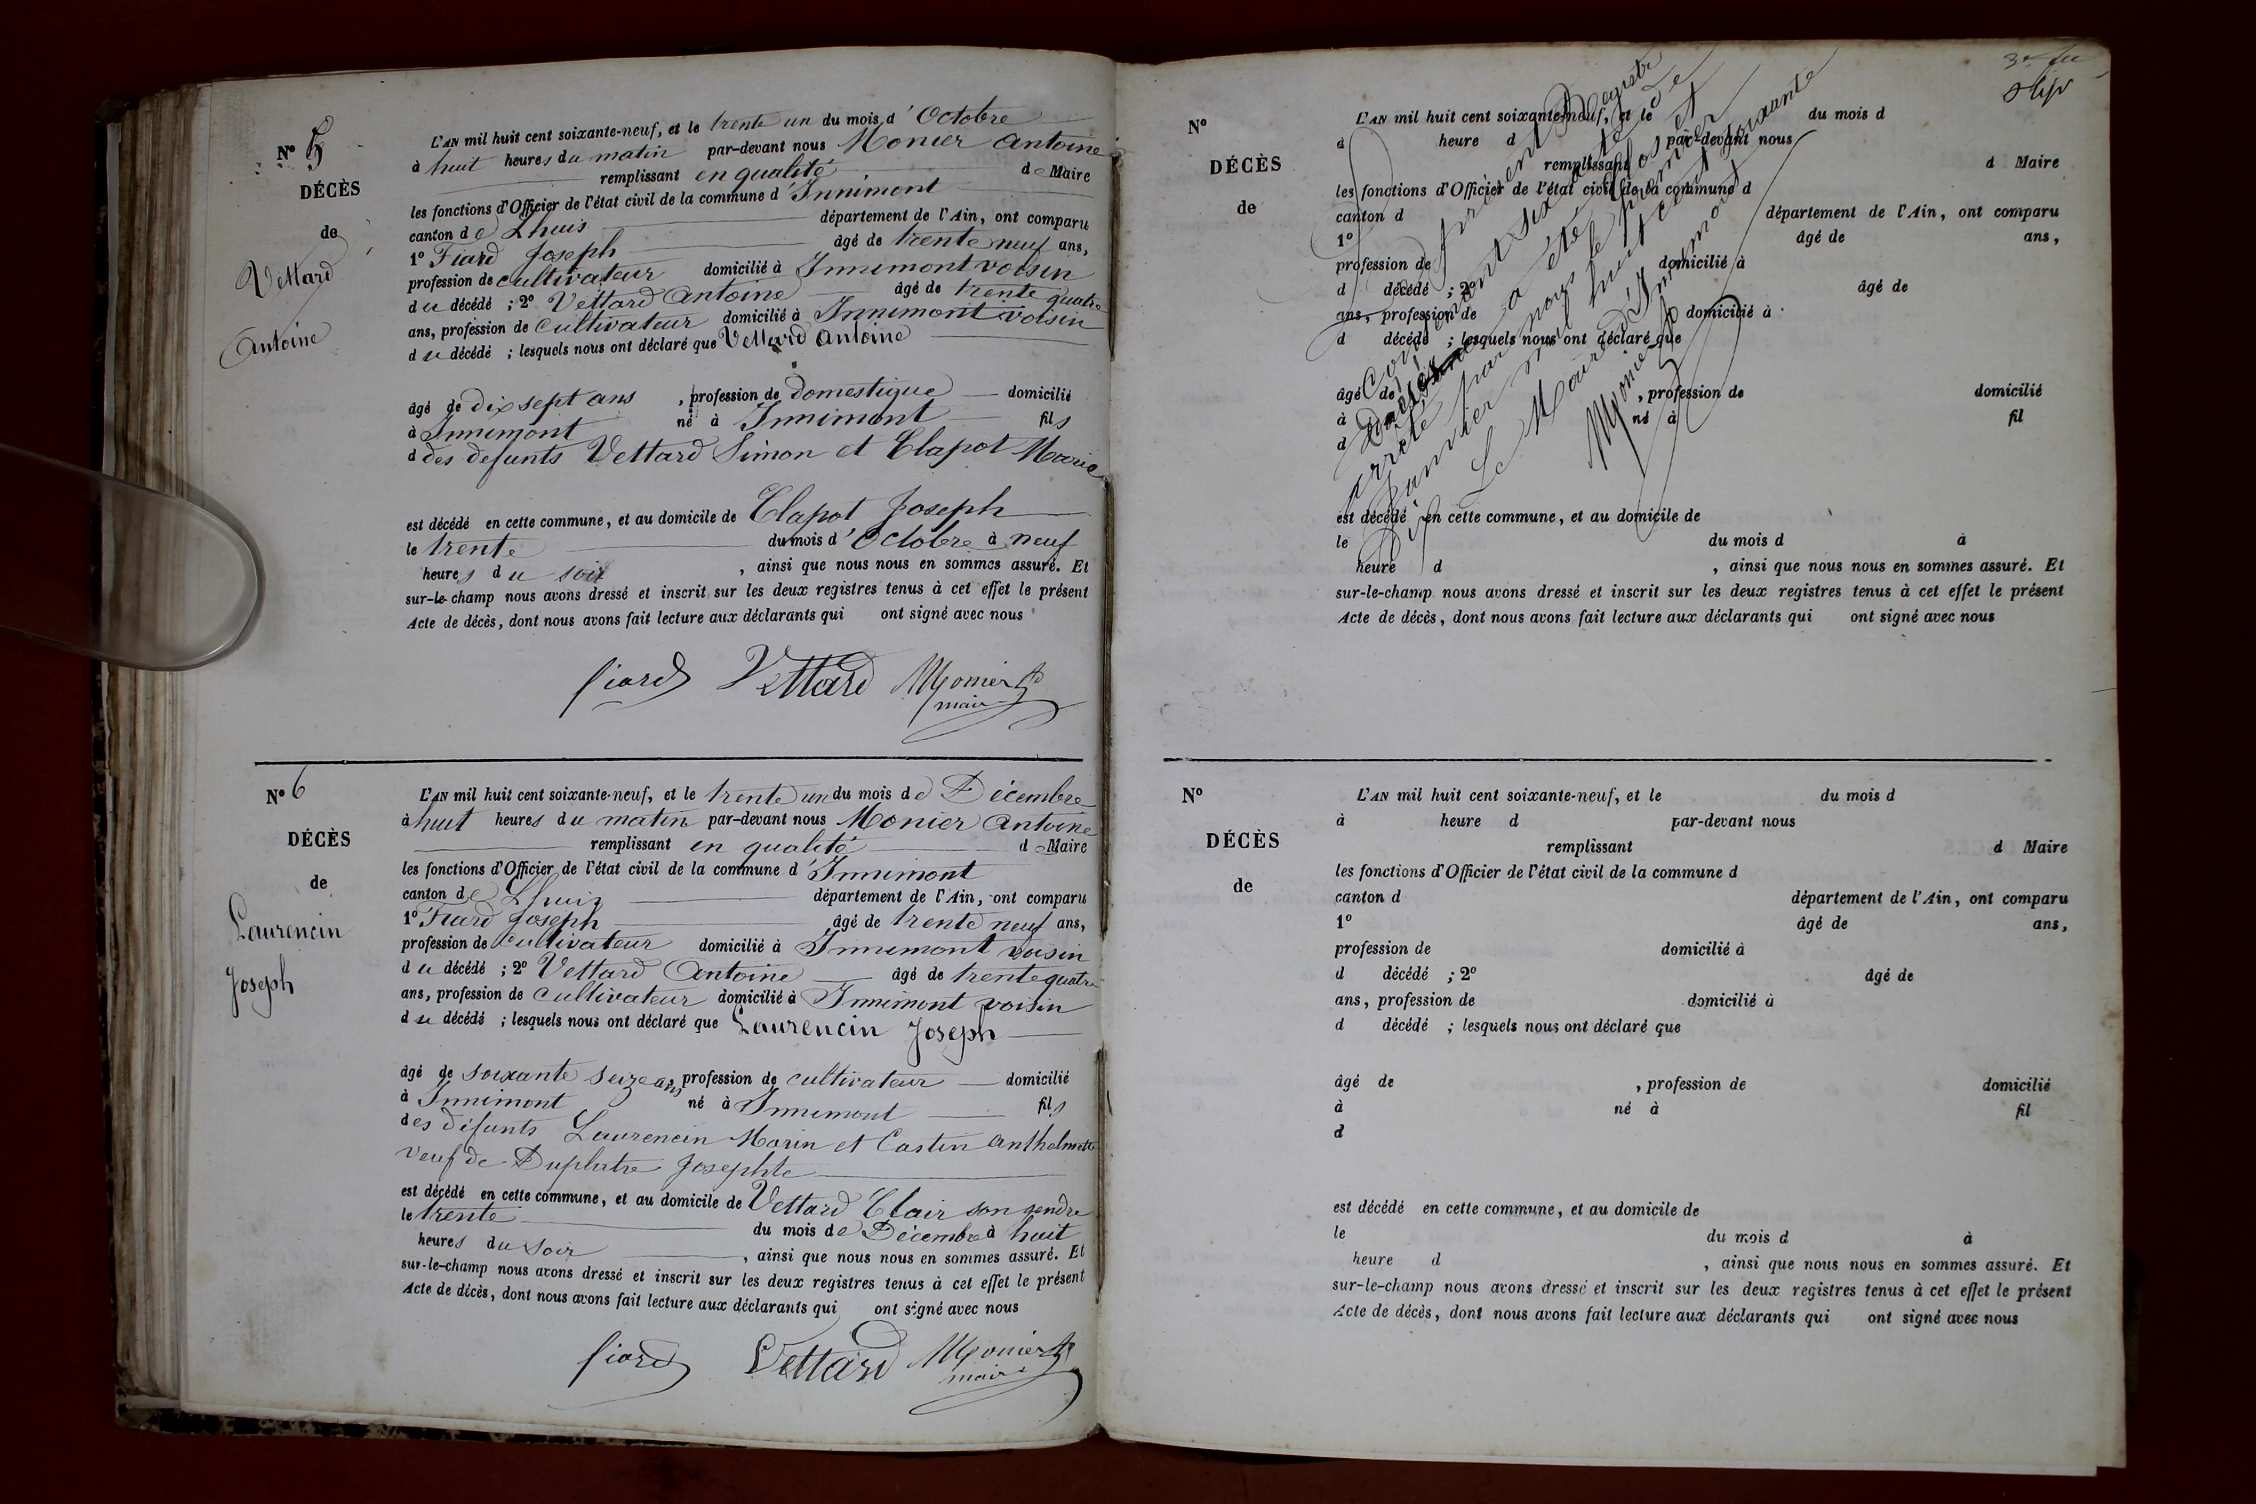 N° 5
DÉCÈS
de
Vettard
Antoine
L'AN mil huit cent soixante-neuf, et le trente un du mois d'Octobre
à huit heures du matin par-devant nous Monier Antoine
remplissant en qualité de Maire
les fonctions d'Officier de l'état civil de la commune d'Innimont
canton de Lhuis département de l'Ain, ont comparu
1° Fiard Joseph âgé de trente neuf ans,
profession de cultivateur domicilié à Innimont voisin
du décédé ; 2° Vettard Antoine âgé de trente quatre
ans, profession de cultivateur domicilié à Innimont voisin
du décédé ; lesquels nous ont déclaré que Vettard Antoine
âgé de dix sept ans , profession de domestique domicilié
à Innimont né à Innimont fils
d des defunts Vettard Simon et Clapot Marie
est décédé en cette commune, et au domicile de Clapot Joseph
le trente du mois d'Octobre à neuf
heures du soir , ainsi que nous nous en sommes assuré. Et
sur-le-champ nous avons dressé et inscrit sur les deux registres tenus à cet effet le présent
Acte de décès, dont nous avons fait lecture aux déclarants qui ont signé avec nous
fiard Vettard Monier
maire
N° 6
DÉCÈS
de
Laurencin
Joseph
L'AN mil huit cent soixante-neuf, et le trente un du mois de Décembre
à huit heures du matin par-devant nous Monier Antoine
remplissant en qualité de Maire
les fonctions d'Officier de l'état civil de la commune d'Innimont
canton de Lhuis département de l'Ain, ont comparu
1° Fiard Joseph âgé de trente neuf ans,
profession de cultivateur domicilié à Innimont voisin
du décédé ; 2° Vettard Antoine âgé de trente quatre
ans, profession de cultivateur domicilié à Innimont voisin
du décédé ; lesquels nous ont déclaré que Laurencin Joseph
âgé de soixante seize ans, profession de cultivateur domicilié
à Innimont né à Innimont fils
des défunts Laurencin Marin et Castin Anthelmette
veuf de Duplatre Josephte
est décédé en cette commune, et au domicile de Vettard Clair son gendre
le trente du mois de Décembre à huit
heures du soir , ainsi que nous nous en sommes assuré. Et
sur-le-champ nous avons dressé et inscrit sur les deux registres tenus à cet effet le présent
Acte de décès, dont nous avons fait lecture aux déclarants qui ont signé avec nous
fiard Vettard Monier
maire
N°
DÉCÈS
de
L'AN mil huit cent soixante-neuf, et le du mois d
à heure d par-devant nous
remplissant d Maire
les fonctions d'Officier de l'état civil de la commune d
canton d département de l'Ain, ont comparu
1° âgé de ans,
profession de domicilié à
d décédé ; 2° âgé de
ans, profession de domicilié à
d décédé ; lesquels nous ont déclaré que
âgé de , profession de domicilié
à né à fil
d
est décédé en cette commune, et au domicile de
le du mois d à
heure d , ainsi que nous nous en sommes assuré. Et
sur-le-champ nous avons dressé et inscrit sur les deux registres tenus à cet effet le présent
Acte de décès, dont nous avons fait lecture aux déclarants qui ont signé avec nous
Le présent Registre
contenant six actes de
Décès a été clos et
arrêté par nous le premier
Janvier mil huit cent soixante
dix
Le Maire d'Innimont
Monier
N°
DÉCÈS
de
L'AN mil huit cent soixante-neuf, et le du mois d
à heure d par-devant nous
remplissant d Maire
les fonctions d'Officier de l'état civil de la commune d
canton d département de l'Ain, ont comparu
1° âgé de ans,
profession de domicilié à
d décédé ; 2° âgé de
ans, profession de domicilié à
d décédé ; lesquels nous ont déclaré que
âgé de , profession de domicilié
à né à fil
d
est décédé en cette commune, et au domicile de
le du mois d à
heure d , ainsi que nous nous en sommes assuré. Et
sur-le-champ nous avons dressé et inscrit sur les deux registres tenus à cet effet le présent
Acte de décès, dont nous avons fait lecture aux déclarants qui ont signé avec nous